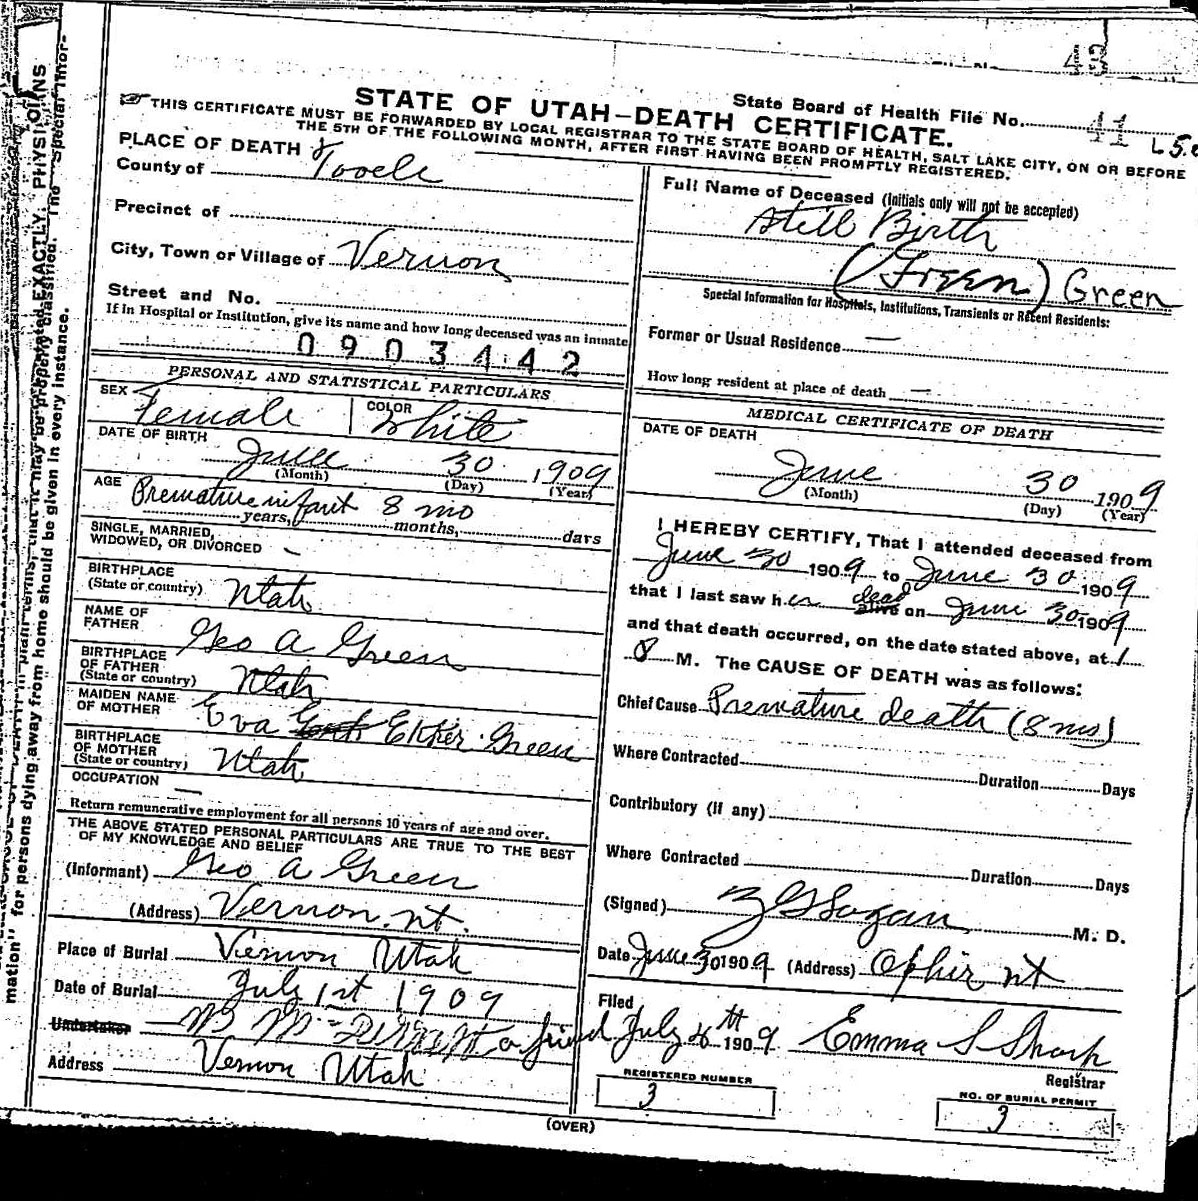 State Board of Health File No. 41
STATE OF UTAH—DEATH CERTIFICATE.
THIS CERTIFICATE MUST BE FORWARDED BY LOCAL REGISTRAR TO THE STATE BOARD OF HEALTH, SALT LAKE CITY, ON OR BEFORE
THE 5TH OF THE FOLLOWING MONTH, AFTER FIRST HAVING BEEN PROMPTLY REGISTERED.
PLACE OF DEATH
County of Tooele
Precinct of
City, Town or Village of Vernon
Street and No.
If in Hospital or Institution, give its name and how long deceased was an inmate
0903442
PERSONAL AND STATISTICAL PARTICULARS
SEX Female COLOR White
DATE OF BIRTH
June 30 1909
(Month) (Day) (Year)
AGE Premature infant 8 mo
years, months, days
SINGLE, MARRIED,
WIDOWED, OR DIVORCED —
BIRTHPLACE
(State or country) Utah
NAME OF
FATHER Geo A Green
BIRTHPLACE
OF FATHER
(State or country) Utah
MAIDEN NAME
OF MOTHER Eva Ekker Green
BIRTHPLACE
OF MOTHER
(State or country) Utah
OCCUPATION —
Return remunerative employment for all persons 10 years of age and over.
THE ABOVE STATED PERSONAL PARTICULARS ARE TRUE TO THE BEST
OF MY KNOWLEDGE AND BELIEF
(Informant) Geo A Green
(Address) Vernon. Ut.
Place of Burial Vernon Utah
Date of Burial July 1st 1909
Undertaker a friend
Address Vernon Utah
Full Name of Deceased (Initials only will not be accepted)
Still Birth
(Green) Green
Special Information for Hospitals, Institutions, Transients or Recent Residents:
Former or Usual Residence —
How long resident at place of death —
MEDICAL CERTIFICATE OF DEATH
DATE OF DEATH
June 30 1909
(Month) (Day) (Year)
I HEREBY CERTIFY, That I attended deceased from
June 30 1909 to June 30 1909
that I last saw her dead alive on June 30 1909
and that death occurred, on the date stated above, at 1
P M. The CAUSE OF DEATH was as follows:
Chief Cause Premature death (8 mo)
Where Contracted Duration Days
Contributory (if any)
Where Contracted Duration Days
(Signed) M. D.
Date June 30 1909 (Address) Ophir Ut
Filed
July 4th 1909 Emma S Sharp
Registrar
REGISTERED NUMBER
3
NO. OF BURIAL PERMIT
3
(OVER)
mation" for persons dying away from home should be given in every instance.